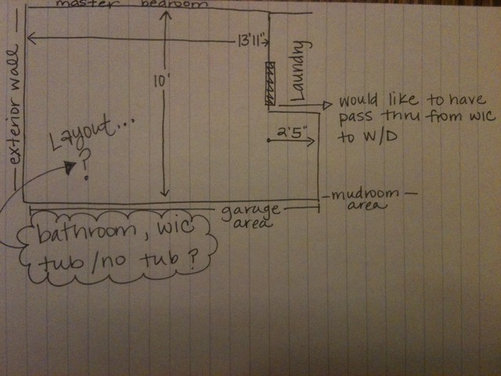 master bedroom
exterior wall
13'11"
10'
Laundry
would like to have
pass thru from wic
to W/D
2'5"
Layout...
?
mudroom
area
garage
area
bathroom, wic
tub/no tub?